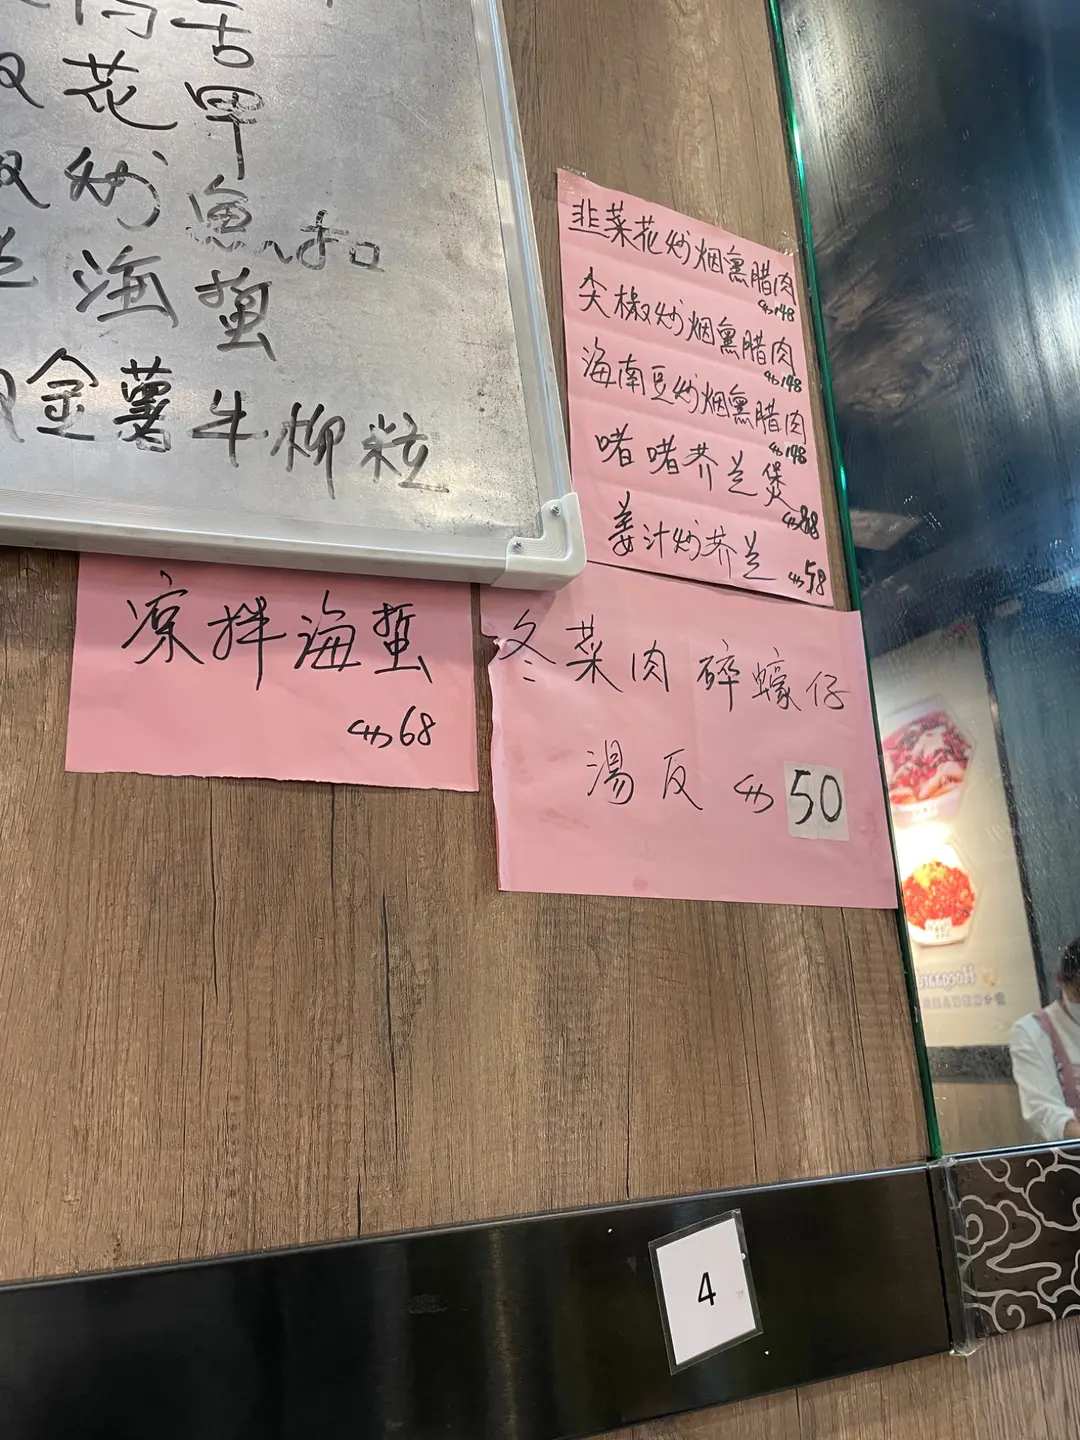 花 甲
炒 魚扣
海 蜇
金薯牛柳粒
韭菜花炒烟熏腊肉
148
尖椒炒烟熏腊肉
148
海南豆炒烟熏腊肉
148
啫啫芥兰煲
88
姜汁炒芥兰
58
凉拌海蜇
68
冬菜肉碎蠔仔
湯反 50
4